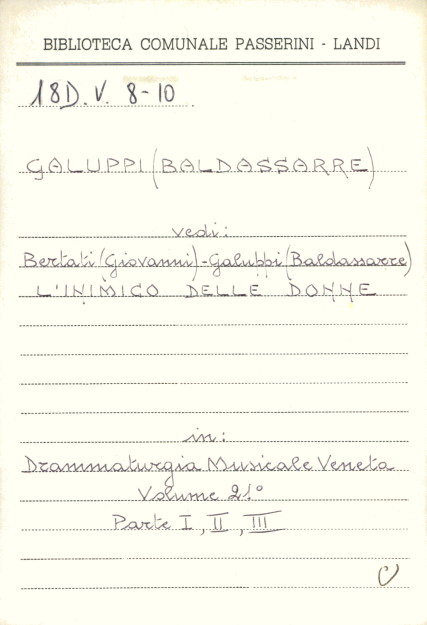 BIBLIOTECA COMUNALE PASSERINI - LANDI
18D. V. 8-10
GALUPPI (BALDASSARRE)
vedi:
Bertati (Giovanni) - Galuppi (Baldassarre)
L'INIMICO DELLE DONNE
in:
Drammaturgia Musicale Veneta
Volume 21º
Parte I, II, III